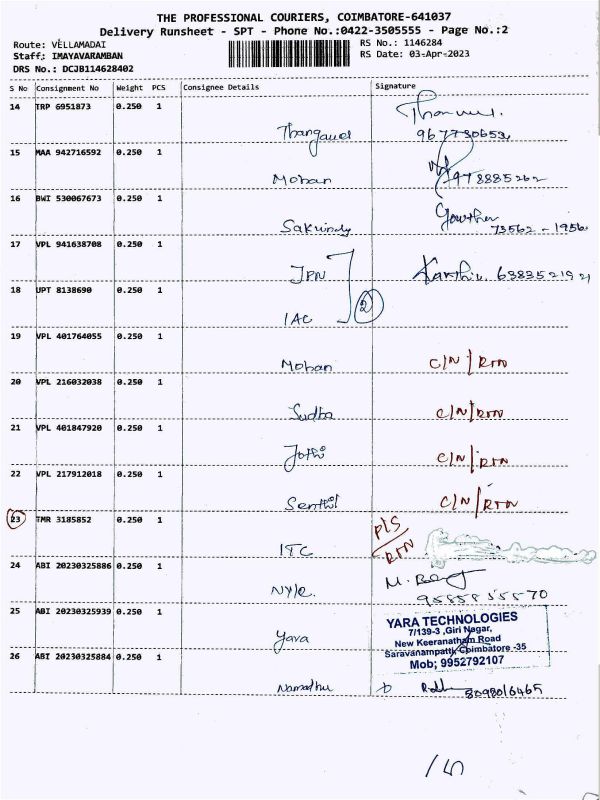 THE PROFESSIONAL COURIERS, COIMBATORE-641037
Delivery Runsheet - SPT - Phone No.:0422-3505555 - Page No.:2
Route: VELLAMADAI RS No.: 1146284
Staff: IMAYAVARAMBAN RS Date: 03-Apr-2023
DRS No.: DCJB114628402
S No Consignment No Weight PCS Consignee Details Signature
14 TRP 6951873 0.250 1
Thangavel
15 MAA 942716592 0.250 1
Mohan 978885262
16 BWI 530067673 0.250 1
Gowtham
73562-1956
17 VPL 941638708 0.250 1
JPN Karthi 638352192
18 UPT 8138690 0.250 1
2
IAC
19 VPL 401764055 0.250 1
Mohan C/N/RTN
20 VPL 216032038 0.250 1
Sudha C/N/RTN
21 VPL 401847920 0.250 1
Jothi C/N/RTN
22 VPL 217912018 0.250 1
Senthil C/N/RTN
23 TMR 3185852 0.250 1
P/S
ITC RTN
24 ABI 20230325886 0.250 1
25 ABI 20230325939 0.250 1
Yara
YARA TECHNOLOGIES
7/139-3, Giri Nagar,
New Keeranatham Road
Saravanampatti, Coimbatore -35
Mob; 9952792107
26 ABI 20230325884 0.250 1
Namadhu 8098016465